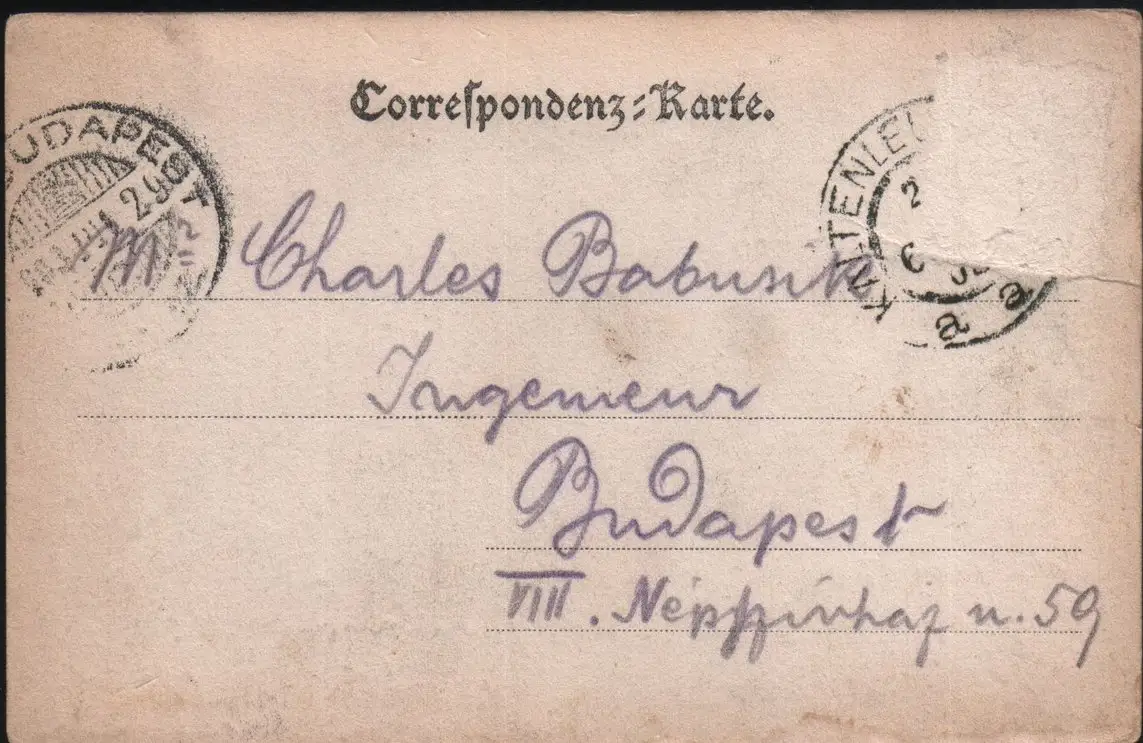 Correspondenz-Karte.
BUDAPEST
KALTENLEU
2
6
Mr Charles Babusik
Ingenieur
Budapest
VIII. Népszínház u. 59